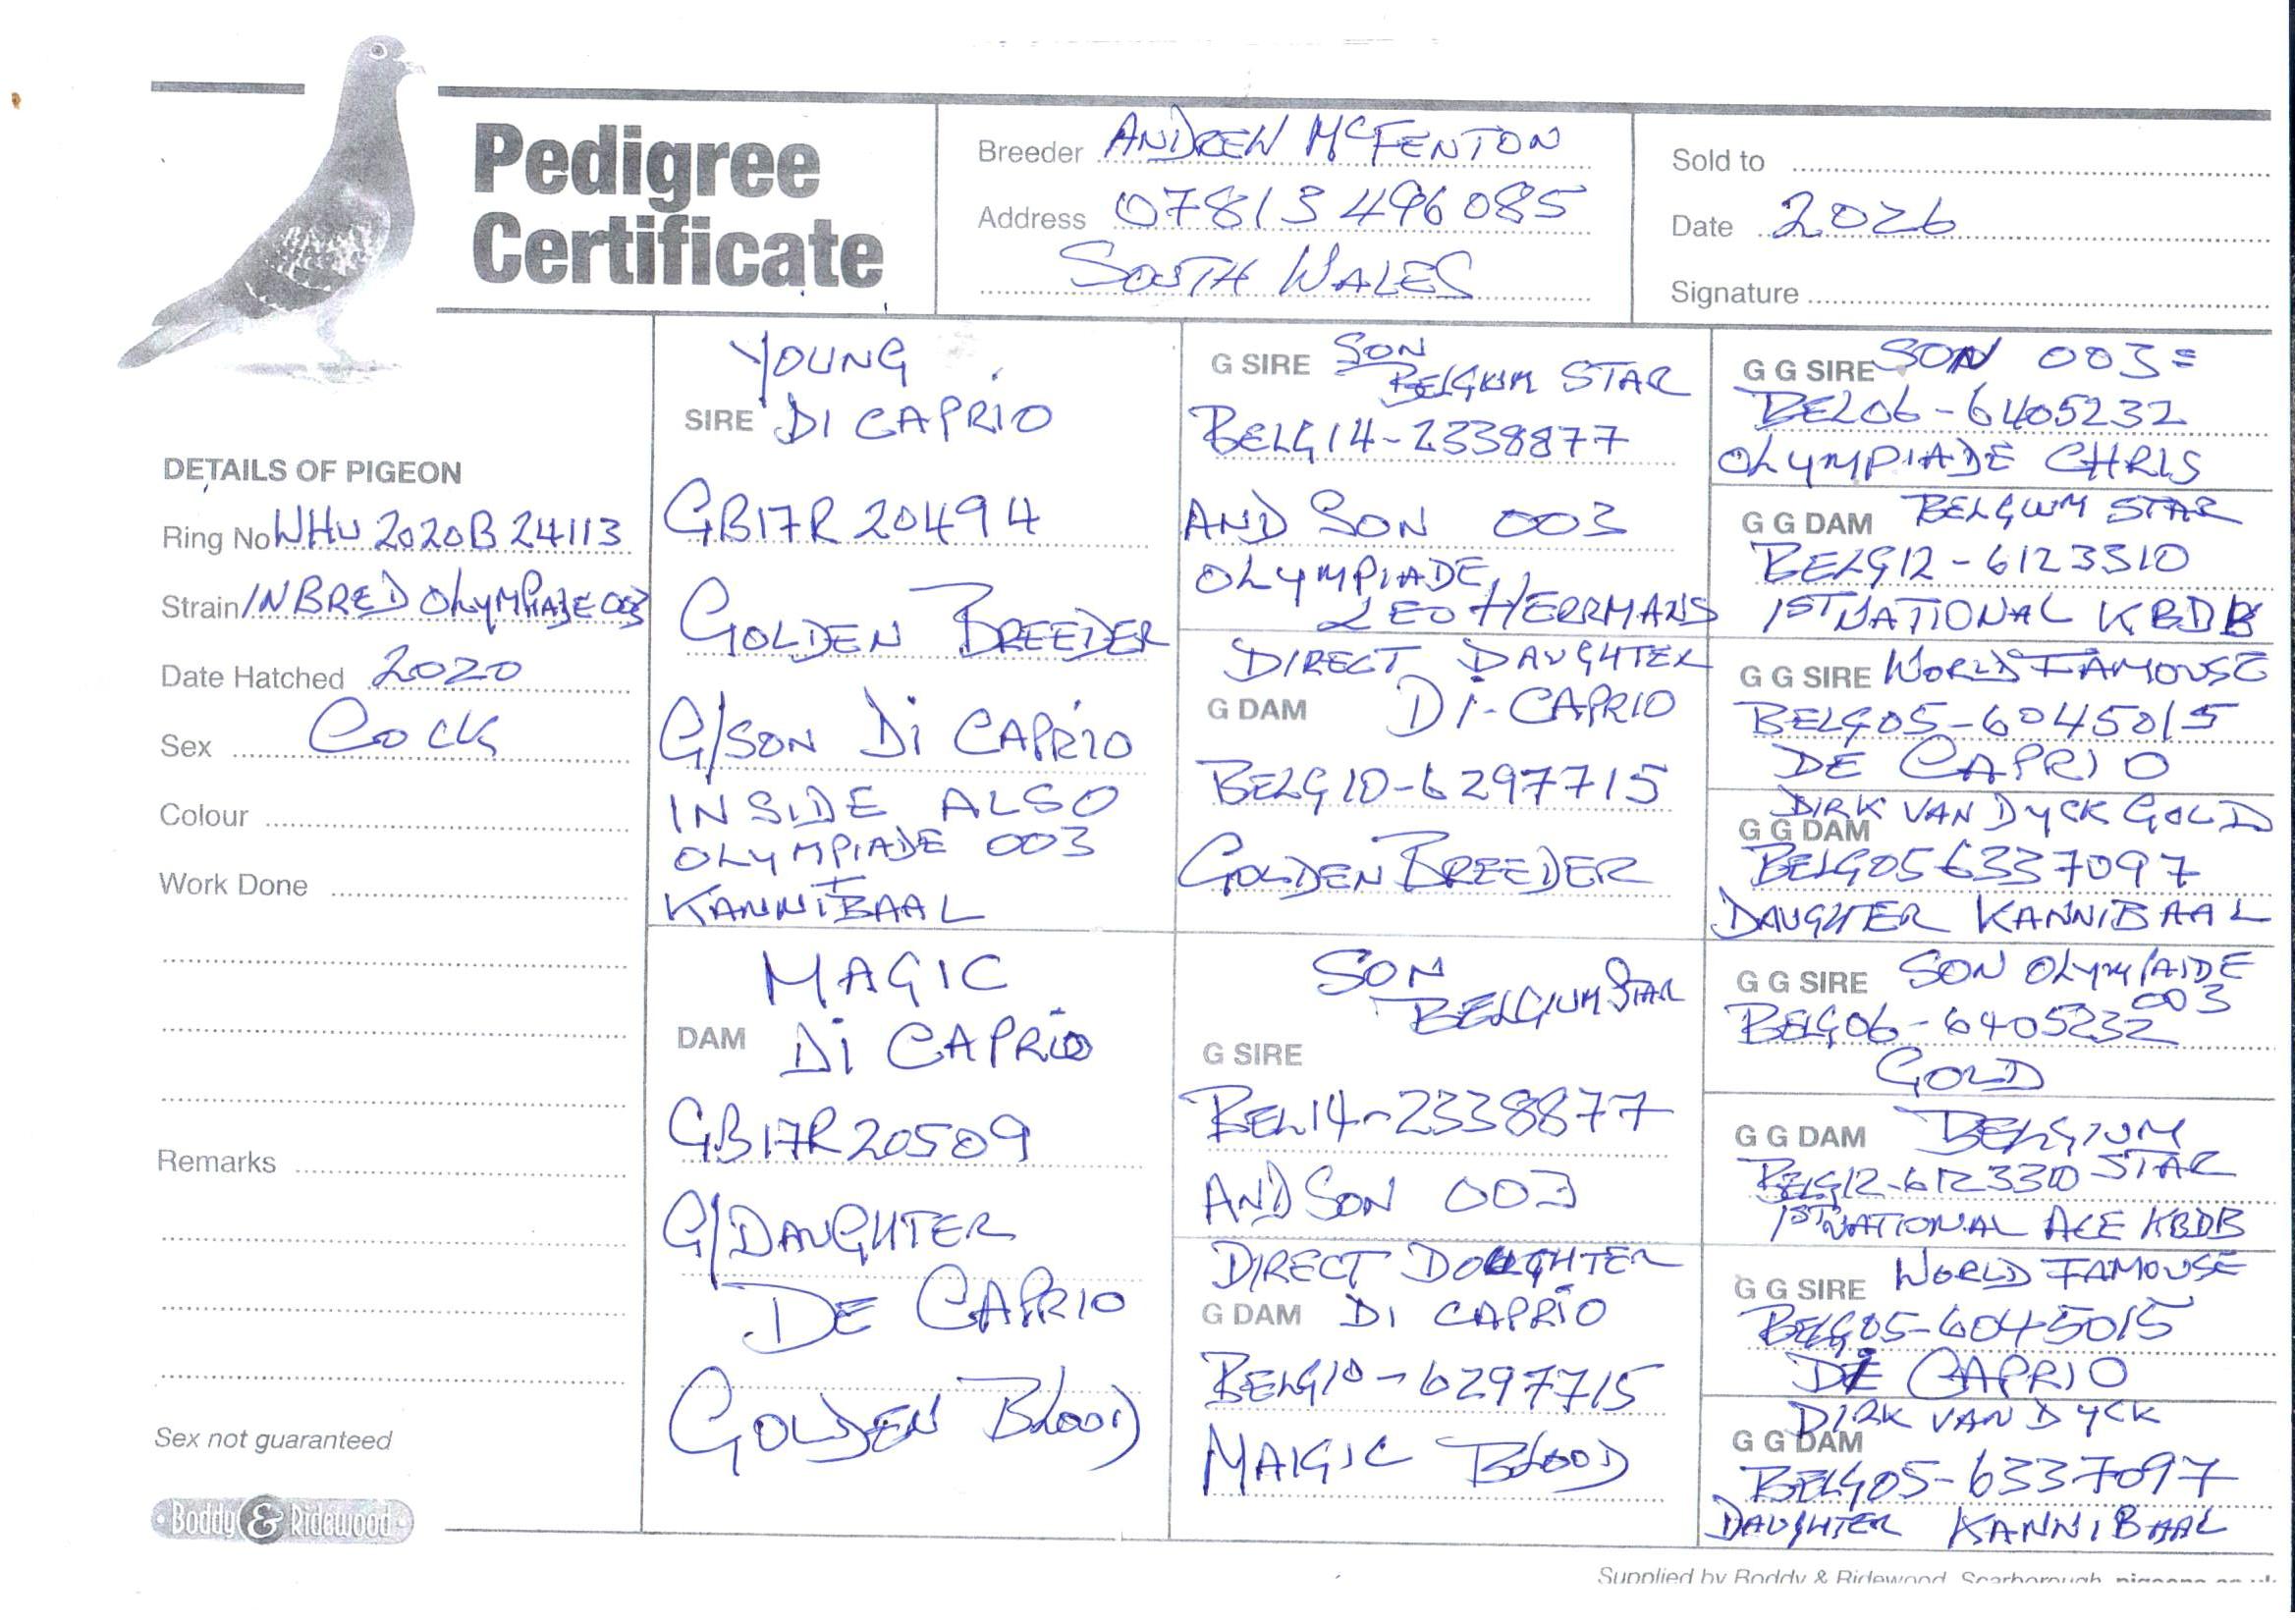 Pedigree
Certificate
Breeder ANDREW McFENTON
Address 07813 496085
SOUTH WALES
Sold to
Date 2026
Signature
DETAILS OF PIGEON
Ring No WHU 2020B 24113
Strain INBRED OLYMPIADE 003
Date Hatched 2020
Sex COCK
Colour
Work Done
Remarks
Sex not guaranteed
Boddy & Ridewood
YOUNG
SIRE DI CAPRIO
GB17R 20494
GOLDEN BREEDER
G/SON Di CAPRIO
INSIDE ALSO
OLYMPIADE 003
KANNIBAAL
MAGIC
DAM Di CAPRIO
GB17R20509
G/DAUGHTER
DE CAPRIO
GOLDEN BLOOD
G SIRE SON
BELGIUM STAR
BELG14-2338877
AND SON 003
OLYMPIADE
LEO HERRMANS
DIRECT DAUGHTER
G DAM Di-CAPRIO
BELG10-6297715
GOLDEN BREEDER
SON
BELGIUM STAR
G SIRE
BEL14-2338877
AND SON 003
DIRECT DOUGHTER
G DAM Di CAPRIO
BELG10-6297715
MAIGIC BLOOD
G G SIRE SON 003=
BEL06-6405232
OLYMPIADE CHRIS
G G DAM BELGIUM STAR
BELG12-6123310
1ST NATIONAL KBDB
G G SIRE WORLD FAMOUSE
BELG05-6045015
DE CAPRIO
DIRK VAN DYCK GOLD
G G DAM
BELG05 6337097
DAUGHTER KANNIBAAL
G G SIRE SON OLYMPAIDE
003
BELG06-6405232
GOLD
G G DAM BELGIUM
STAR
BELG12-6123310
1ST NATIONAL ACE KBDB
G G SIRE WORLD FAMOUSE
BELG05-6045015
DE CAPRIO
DIRK VAN DYCK
G G DAM
BELG05-6337097
DAUGHTER KANNIBAAL
Supplied by Boddy & Ridewood, Scarborough